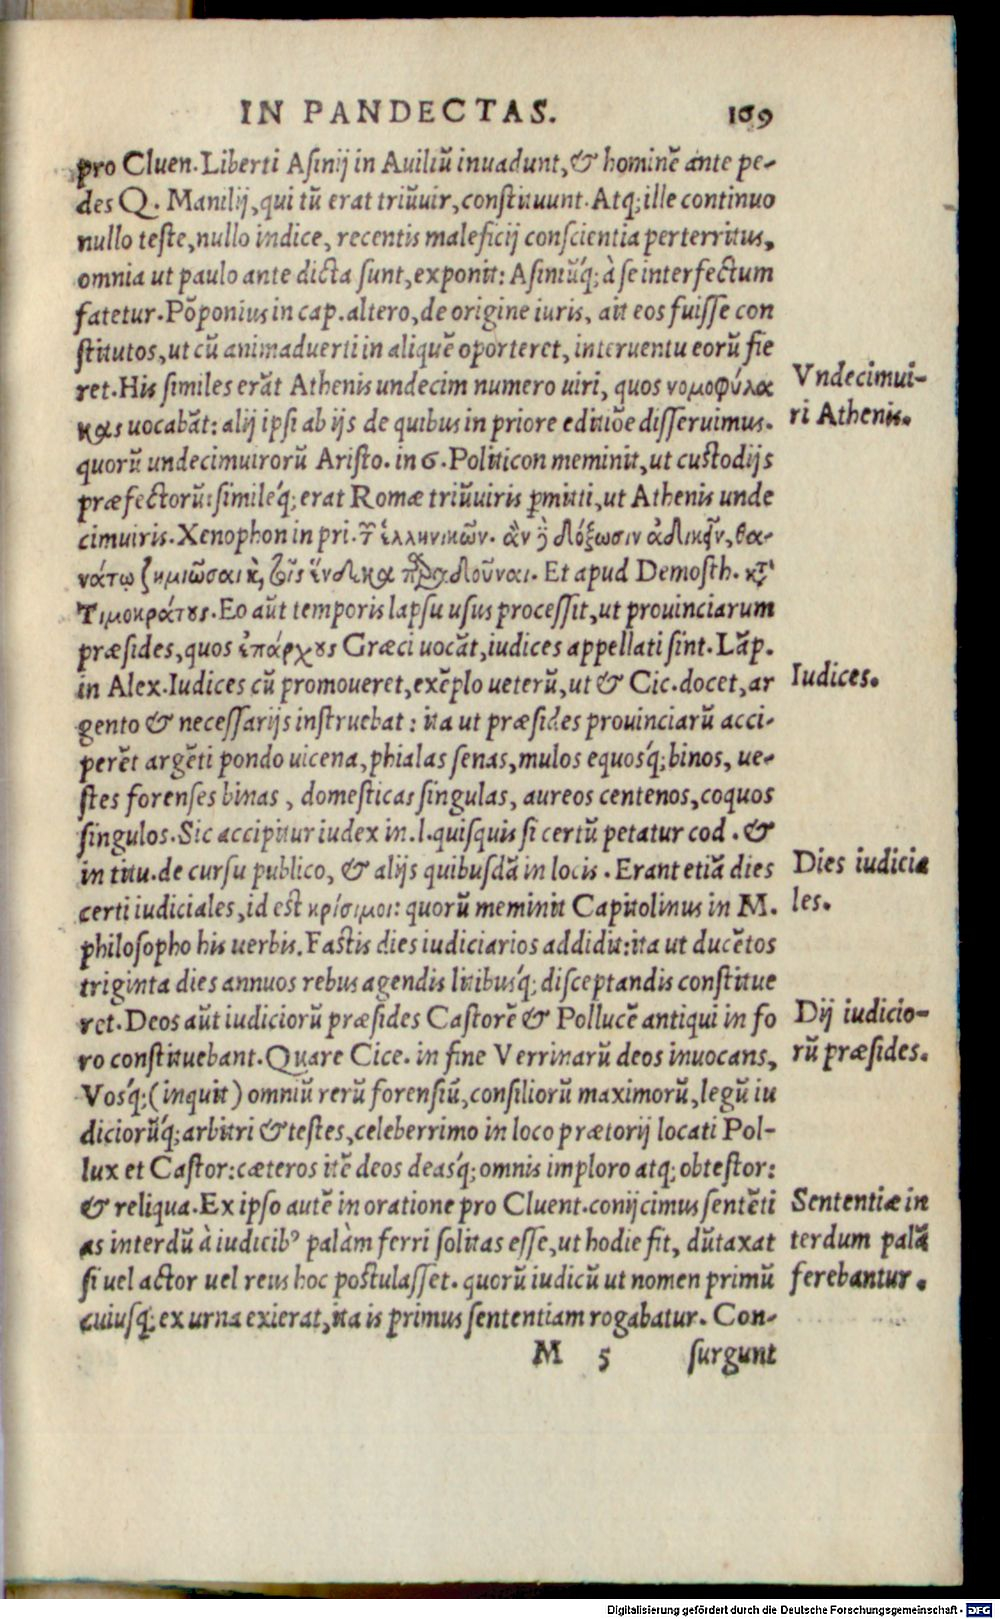 IN PANDECTAS. 169
pro Cluen. Liberti Asinij in Auiliū inuadunt, & hominē ante pe-
des Q. Manilij, qui tū erat triūuir, constituunt. Atq; ille continuo
nullo teste, nullo indice, recentis maleficij conscientia perterritus,
omnia ut paulo ante dicta sunt, exponit: Asiniūq́; à se interfectum
fatetur. Pōponius in cap. altero, de origine iuris, ait eos fuisse con
stitutos, ut cū animaduerti in aliquē oporteret, interuentu eorū fie
ret. His similes erāt Athenis undecim numero uiri, quos νομοφύλα
κας uocabāt: alij ipsi ab ijs de quibus in priore editiōe disseruimus.
quorū undecimuirorū Aristo. in 6. Politicon meminit, ut custodijs
præfectorū: simileq́; erat Romæ triūuiris ꝑmitti, ut Athenis unde
cimuiris. Xenophon in pri. τ ἑλληνικῶν. ἂν ᾖ δόξωσιν ἀδικεῖν, θα-
νάτῳ ζημιῶσαι κ, τοῖς ἕνδεκα παραδοῦναι. Et apud Demosth. κτ̀
Τιμοκράτους. Eo aūt temporis lapsu usus processit, ut prouinciarum
præsides, quos ἐπάρχους Græci uocāt, iudices appellati sint. Lāp.
in Alex. Iudices cū promoueret, exēplo ueterū, ut & Cic. docet, ar
gento & necessarijs instruebat: ita ut præsides prouinciarū acci-
perēt argēti pondo uicena, phialas senas, mulos equosq́; binos, ue-
stes forenses binas, domesticas singulas, aureos centenos, coquos
singulos. Sic accipitur iudex in. l. quisquis si certū petatur cod. &
in titu. de cursu publico, & alijs quibusdā in locis. Erant etiā dies
certi iudiciales, id est κρίσιμοι: quorū meminit Capitolinus in M.
philosopho his uerbis. Fastis dies iudiciarios addidit: ita ut ducētos
triginta dies annuos rebus agendis litibusq́; disceptandis constitue
ret. Deos aūt iudiciorū præsides Castorē & Pollucē antiqui in fo
ro constituebant. Quare Cice. in fine Verrinarū deos inuocans,
Vosq́; (inquit) omniū rerū forensiū, consiliorū maximorū, legū iu
diciorūq́; arbitri & testes, celeberrimo in loco prætorij locati Pol-
lux et Castor: cæteros itē deos deasq́; omnis imploro atq; obtestor:
& reliqua. Ex ipso autē in oratione pro Cluent. conijcimus sentēti
as interdū à iudicibꝰ palàm ferri solitas esse, ut hodie fit, dūtaxat
si uel actor uel reus hoc postulasset. quorū iudicū ut nomen primū
cuiusq; ex urna exierat, ita is primus sententiam rogabatur. Con-
M 5 surgunt
Vndecimui-
ri Athenis.
Iudices.
Dies iudicia
les.
Dij iudicio-
rū præsides.
Sententiæ in
terdum palā
ferebantur.
Digitalisierung gefördert durch die Deutsche Forschungsgemeinschaft - DFG